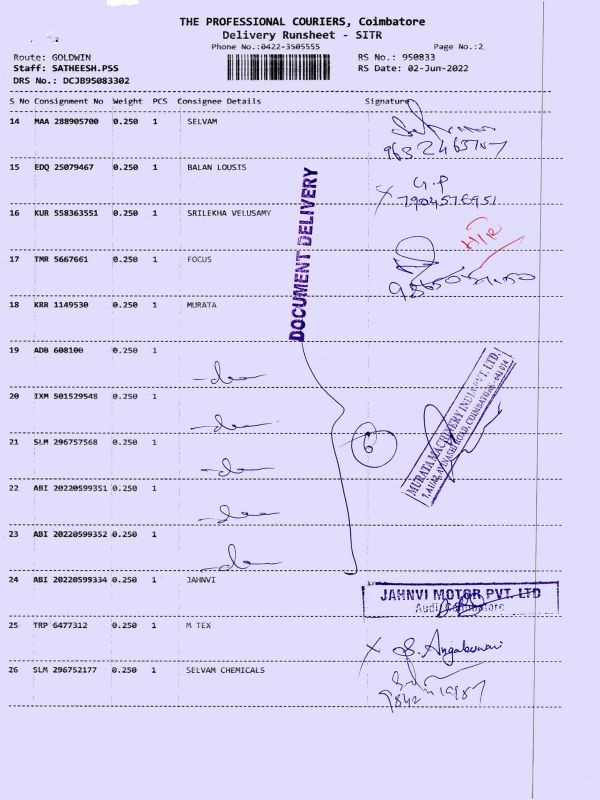 THE PROFESSIONAL COURIERS, Coimbatore
Delivery Runsheet - SITR
Phone No.:0422-3505555 Page No.:2
Route: GOLDWIN RS No.: 950833
Staff: SATHEESH.PSS RS Date: 02-Jun-2022
DRS No.: DCJB95083302
S No Consignment No Weight PCS Consignee Details Signature
14 MAA 288905700 0.250 1 SELVAM
15 EDQ 25079467 0.250 1 BALAN LOUSIS
G.P
7904576951
DOCUMENT DELIVERY
16 KUR 558363551 0.250 1 SRILEKHA VELUSAMY
17 TMR 5667661 0.250 1 FOCUS
18 KRR 1149530 0.250 1 MURATA
19 ADB 608100 0.250 1
20 IXM 501529548 0.250 1
21 SLM 296757568 0.250 1
6
MURATA MACHINERY INDIA PVT. LTD.
22 ABI 20220599351 0.250 1
23 ABI 20220599352 0.250 1
24 ABI 20220599334 0.250 1 JAHNVI
JAHNVI MOTOR PVT. LTD
Audi Coimbatore
25 TRP 6477312 0.250 1 M TEX
26 SLM 296752177 0.250 1 SELVAM CHEMICALS